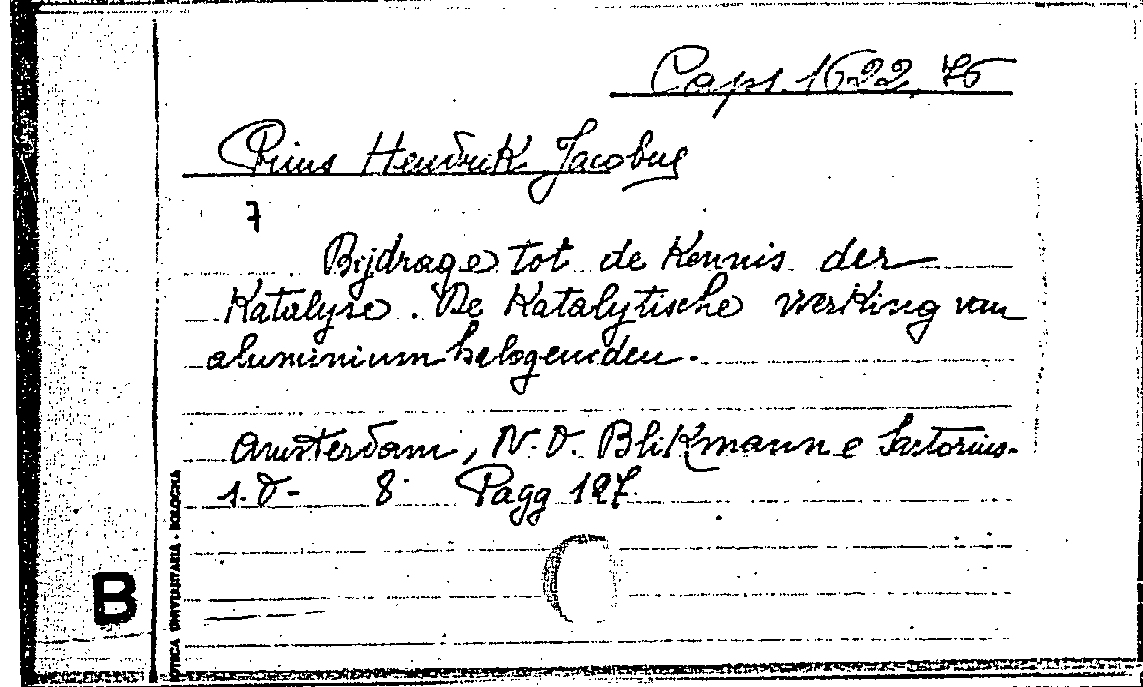 Caps. 1622, 76
Prius Hendrik Jacobus
7
Bijdrage tot de Kennis der
Katalyse. De Katalytische werking van
aluminiumhalogeniden.
Amsterdam, N.V. Blikmann e Sartorius.
s.d- 8° Pagg 127.
B
OTECA UNIVERSITARIA - BOLOGNA